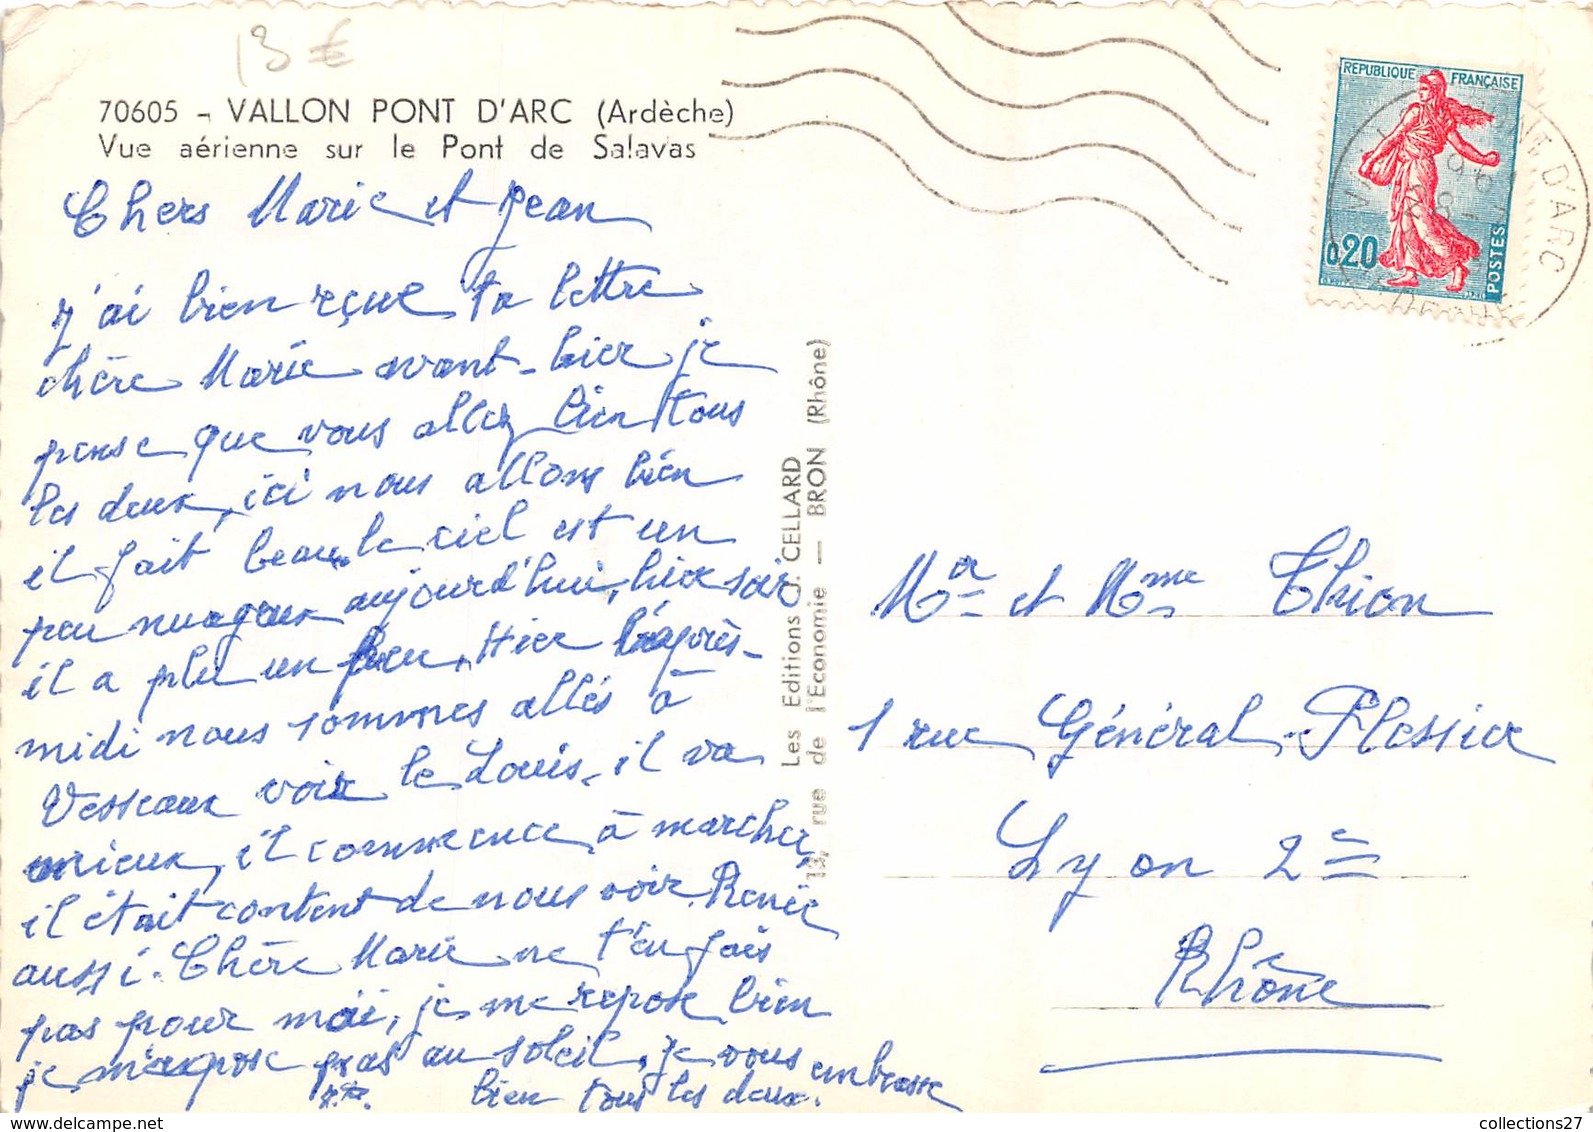 13 €
70605 - VALLON PONT D'ARC (Ardèche)
Vue aérienne sur le Pont de Salavas
Chers Marie et Jean
j'ai bien reçue ta lettre
chère Marie avant-hier je
pense que vous allez bien tous
les deux, ici nous allons bien
il fait beau, le ciel est un
peu nuageux aujourd'hui, hier soir
il a plu un peu, Hier l'après-
midi nous sommes allés à
Vesseaux voir le Louis, il va
mieux, il commence à marcher,
il était content de nous voir Renée
aussi. Chère Marie ne t'en fais
pas pour moi, je me repose bien
je m'expose pas au soleil, je vous embrasse
bien tous les deux.
Les Editions J. CELLARD
13, rue de l'Economie — BRON (Rhône)
REPUBLIQUE FRANÇAISE
0,20
POSTES
PONT D'ARC
Mr et Mme Thion
1 rue Général-Plessier
Lyon 2e
Rhône
collections27